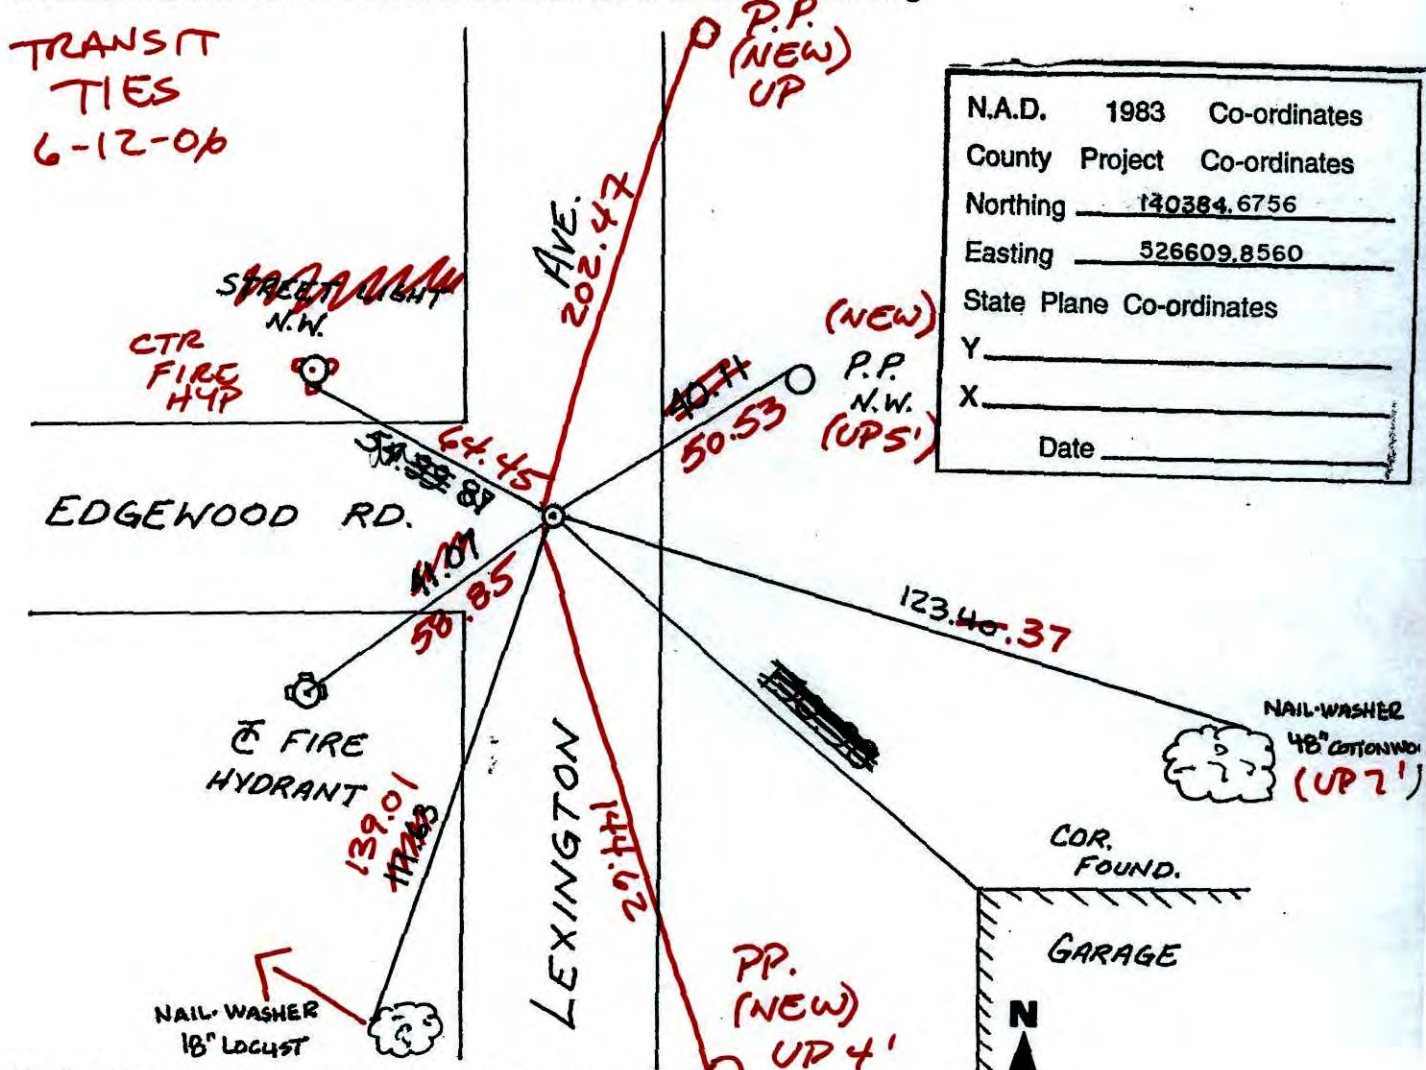 TRANSIT
TIES
6-12-06
P.P.
(NEW)
UP
N.A.D. 1983 Co-ordinates
County Project Co-ordinates
Northing 140384.6756
Easting 526609.8560
State Plane Co-ordinates
Y
X
Date
AVE.
202.47
STREET LIGHT
N.W.
CTR
FIRE
HYD
(NEW)
P.P.
N.W.
(UP5')
40.11
50.53
64.45
EDGEWOOD RD.
41.07
58.85
123.40.37
NAIL-WASHER
48" COTTONWO
(UP 7')
₵ FIRE
HYDRANT
139.01
LEXINGTON
COR.
FOUND.
GARAGE
PP.
(NEW)
UP 4'
NAIL-WASHER
18" LOCUST
N